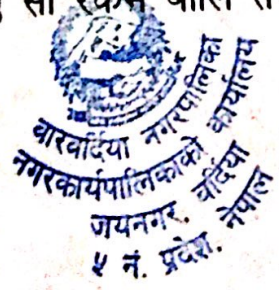 सो रकम
बारबर्दिया नगरपालिका
नगरकार्यपालिकाको कार्यालय
जयनगर, बर्दिया
५ नं. प्रदेश, नेपाल